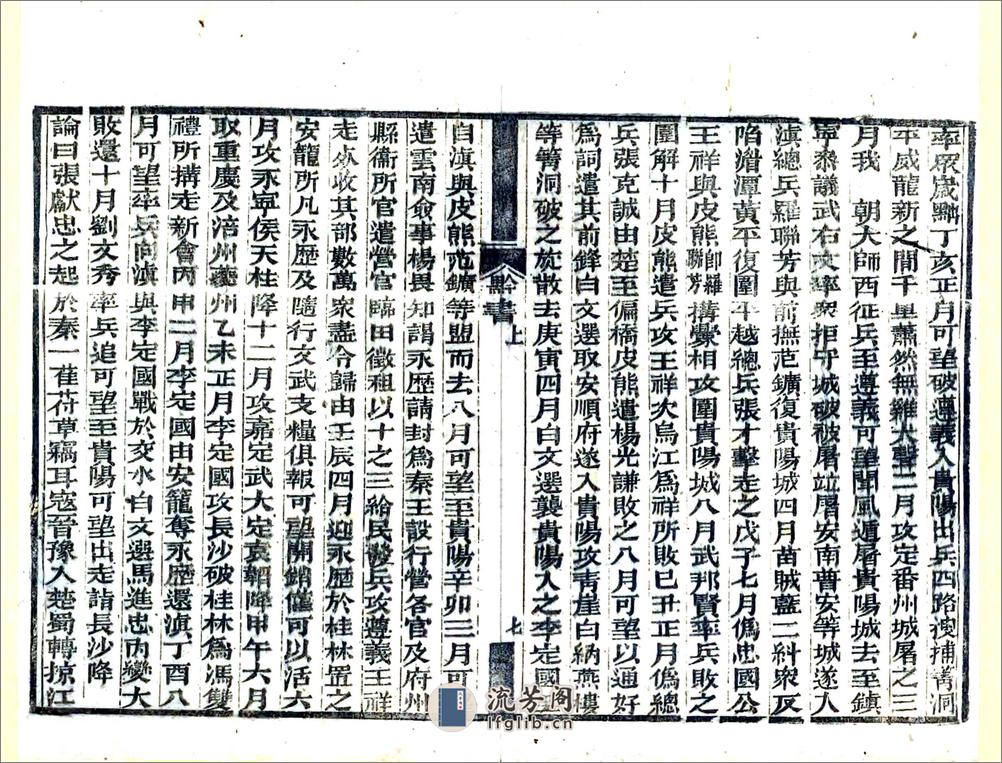 率眾歲黔丁亥正月可望破遵義入貴陽出兵四路搜捕青洞
平威龍新之間千里蕭然無雞犬聲二月攻定番州城屠之三
月我　朝大師西征兵至遵義可望聞風遁屠貴陽城去至鎮
寧叅議武右文率眾拒守城破被屠竝屠安南普安等城遂入
滇總兵羅聯芳與前撫范鑛復貴陽城四月苗賊藍二糾眾反
陷湄潭黃平復圍平越總兵張才擊走之戊子七月僞忠國公
王祥與皮熊卽羅聯芳搆釁相攻圍貴陽城八月武邦賢率兵敗之
圍解十月皮熊遣兵攻王祥次烏江爲祥所敗已丑正月僞總
兵張克誠由楚至偏橋皮熊遣楊光謙敗之八月可望以通好
爲詞遣其前鋒白文選取安順府遂入貴陽攻青崖白納燕樓
等箐洞破之於散去庚寅四月白文選襲貴陽入之李定國
黔書　上　七
自滇與皮熊范鑛等盟而去八月可望至貴陽辛卯三月可
遣雲南僉事楊畏知謁永歷請封爲秦王設行營各官及府州
縣衞所官遣營官臨田徵租以十之三給民發兵攻遵義王祥
走死收其部數萬眾盡令歸由壬辰四月迎永歷於桂林置之
安籠所凡永歷及隨行文武支糧俱報可望開銷僅可以活六
月攻永寧侯天柱降十二月攻嘉定武大定袁韜降甲午六月
取重慶及涪州夔州乙未正月李定國攻長沙破桂林爲馮雙
禮所搆走新會丙申二月李定國由安籠奪永歷還滇丁酉八
月可望率兵向滇與李定國戰於交水白文選馬進忠內變大
敗還十月劉文秀率兵追可望至貴陽可望出走詣長沙降
論曰張獻忠之起於秦一萑苻草竊耳寇晉豫入楚蜀轉掠江
流芳阁
lfglib.cn